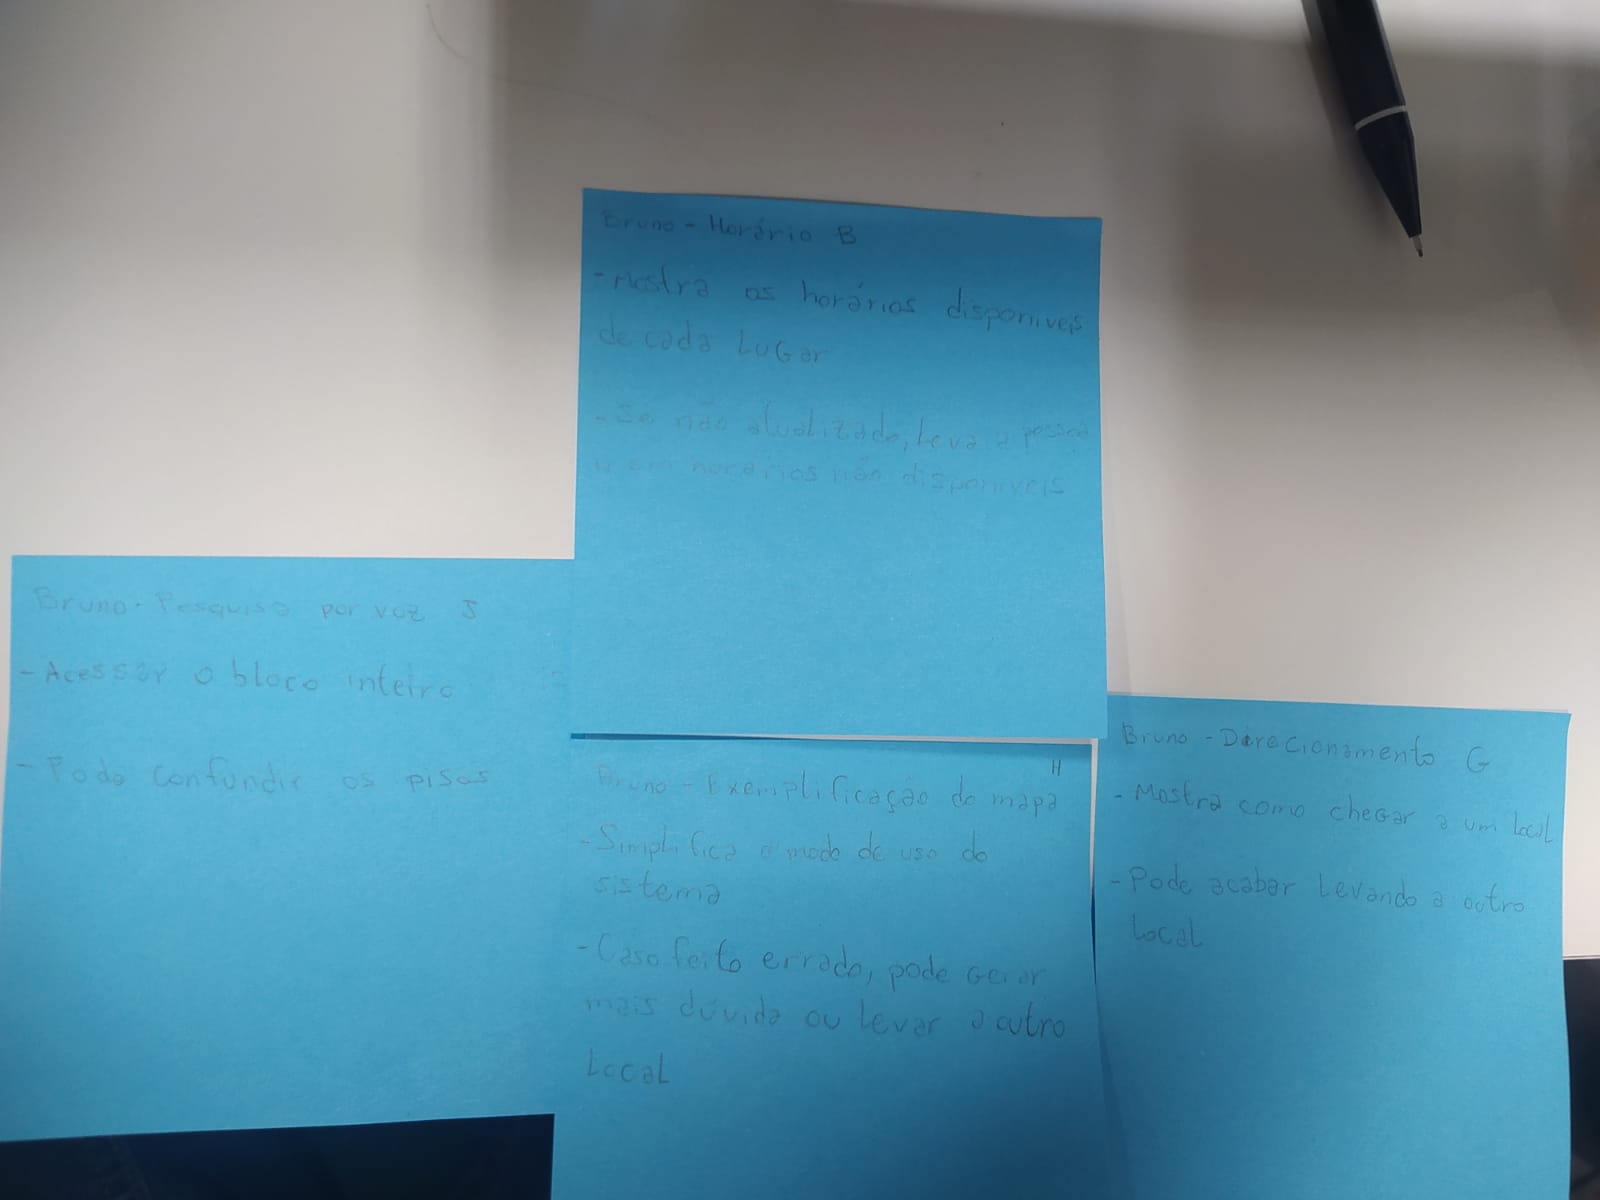 Bruno - Horário B
- Mostra os horários disponiveis
de cada Lugar
- Se não atualizado, Leva a pessoa
ir em horários não disponiveis
Bruno - Pesquisa por voz J
- Acessar o bloco inteiro
- Pode confundir os pisos
H
Bruno - Exemplificação do mapa
- Simplifica o modo de uso do
sistema
- Caso feito errado, pode Gerar
mais dúvida ou Levar a outro
Local
Bruno - Direcionamento G
- Mostra como cheGar a um Local
- Pode acabar Levando a outro
Local